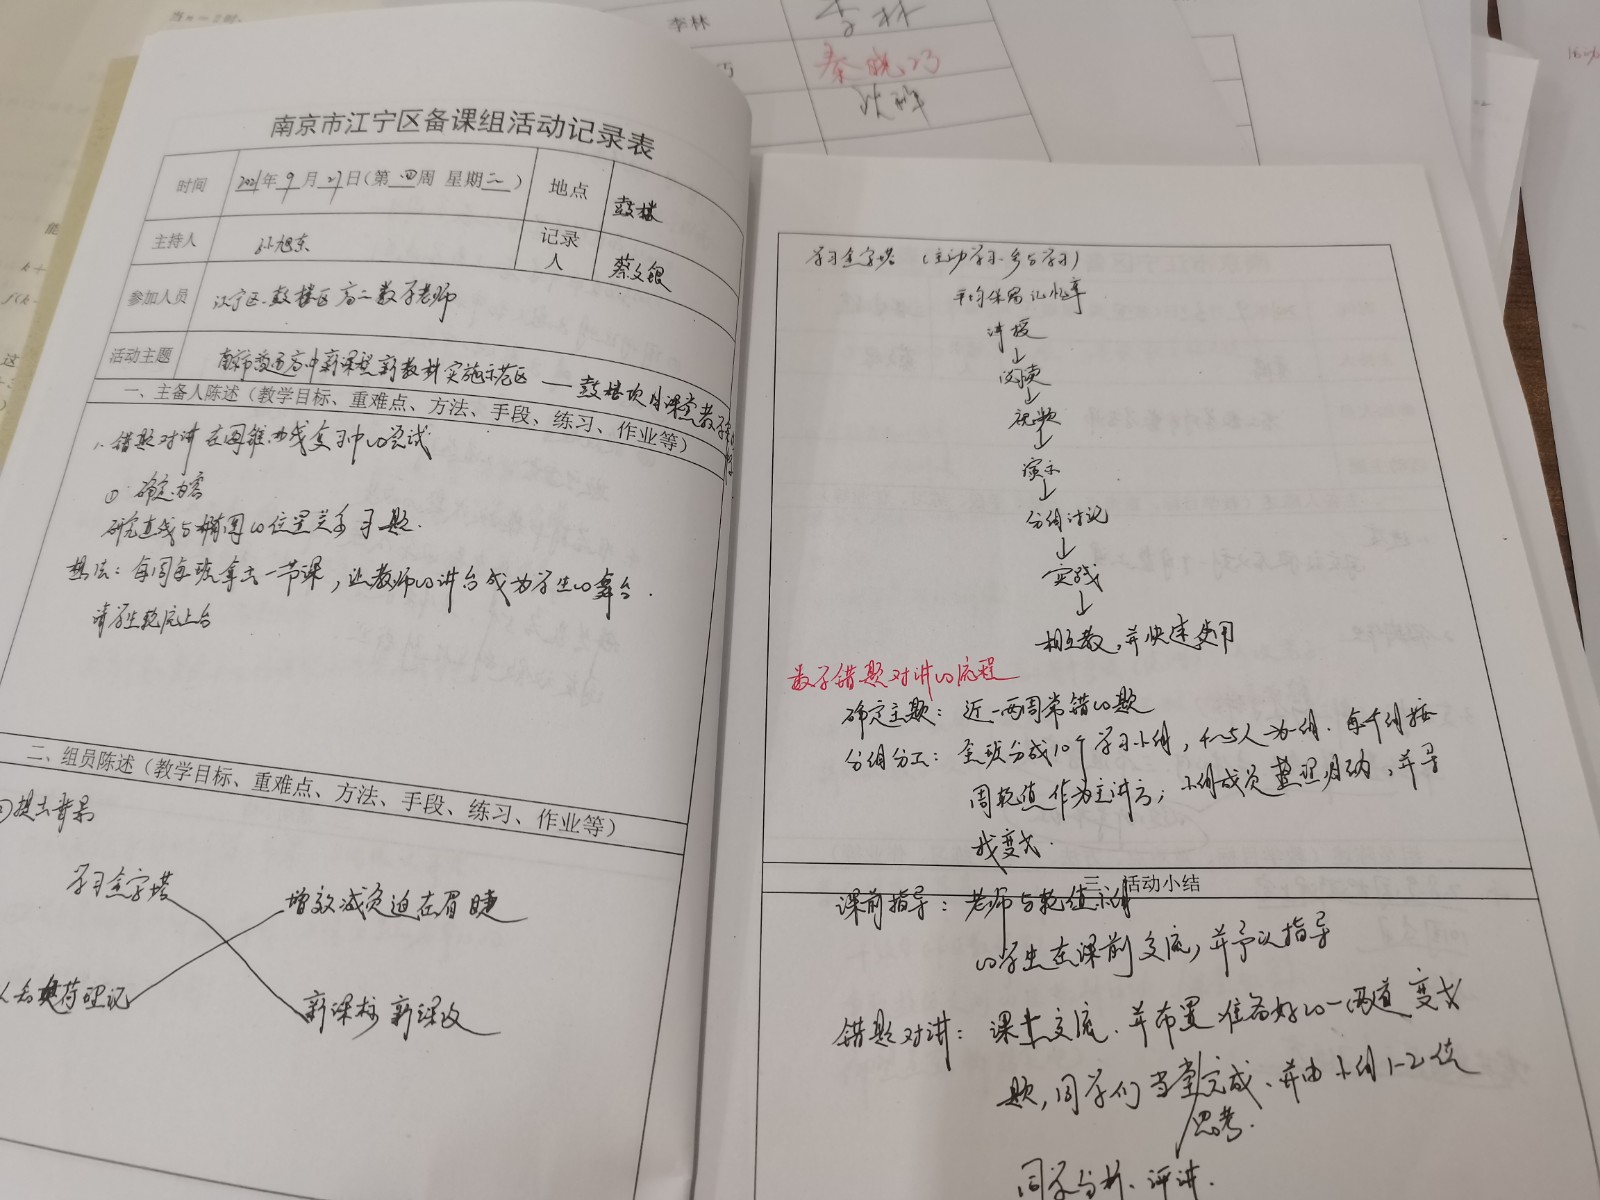 当n=2时,
李林
李林
秦晓巧
南京市江宁区备课组活动记录表
时间 2021年9月27日(第四周 星期二) 地点 鼓楼
主持人 孙旭东 记录人 蔡文银
参加人员 江宁区、鼓楼区高二数学老师
活动主题 南京市普通高中新课程新教材实施示范区——鼓楼次月课堂教学
一、主备人陈述(教学目标、重难点、方法、手段、练习、作业等)
1、错题对讲在圆锥曲线复习中的尝试
① 确定内容
研究直线与椭圆的位置关系习题.
想法:每周每班拿去一节课,让教师的讲台成为学生的舞台.
请学生轮流上台
二、组员陈述(教学目标、重难点、方法、手段、练习、作业等)
提出背景
学习金字塔 增效减负迫在眉睫
新课标 新课改
学习金字塔 (主动学习、参与学习)
平均保留记忆率
讲授
↓
阅读
↓
视频
↓
演示
↓
分组讨论
↓
实践
↓
相互教,并快速使用
数学错题对讲的流程
确定主题: 近一两周常错的题
分组分工: 全班分成10个学习小组,4~5人为一组.每个组按
周轮值作为主讲方;小组成员整理归纳,并寻
找变式.
三、活动小结
课前指导: 老师与轮值小组
的学生在课前交流,并予以指导
错题对讲: 课上交流.并布置准备好的一两道变式
题,同学们当堂完成、并由小组1-2位
思考.
同学分析、评讲.